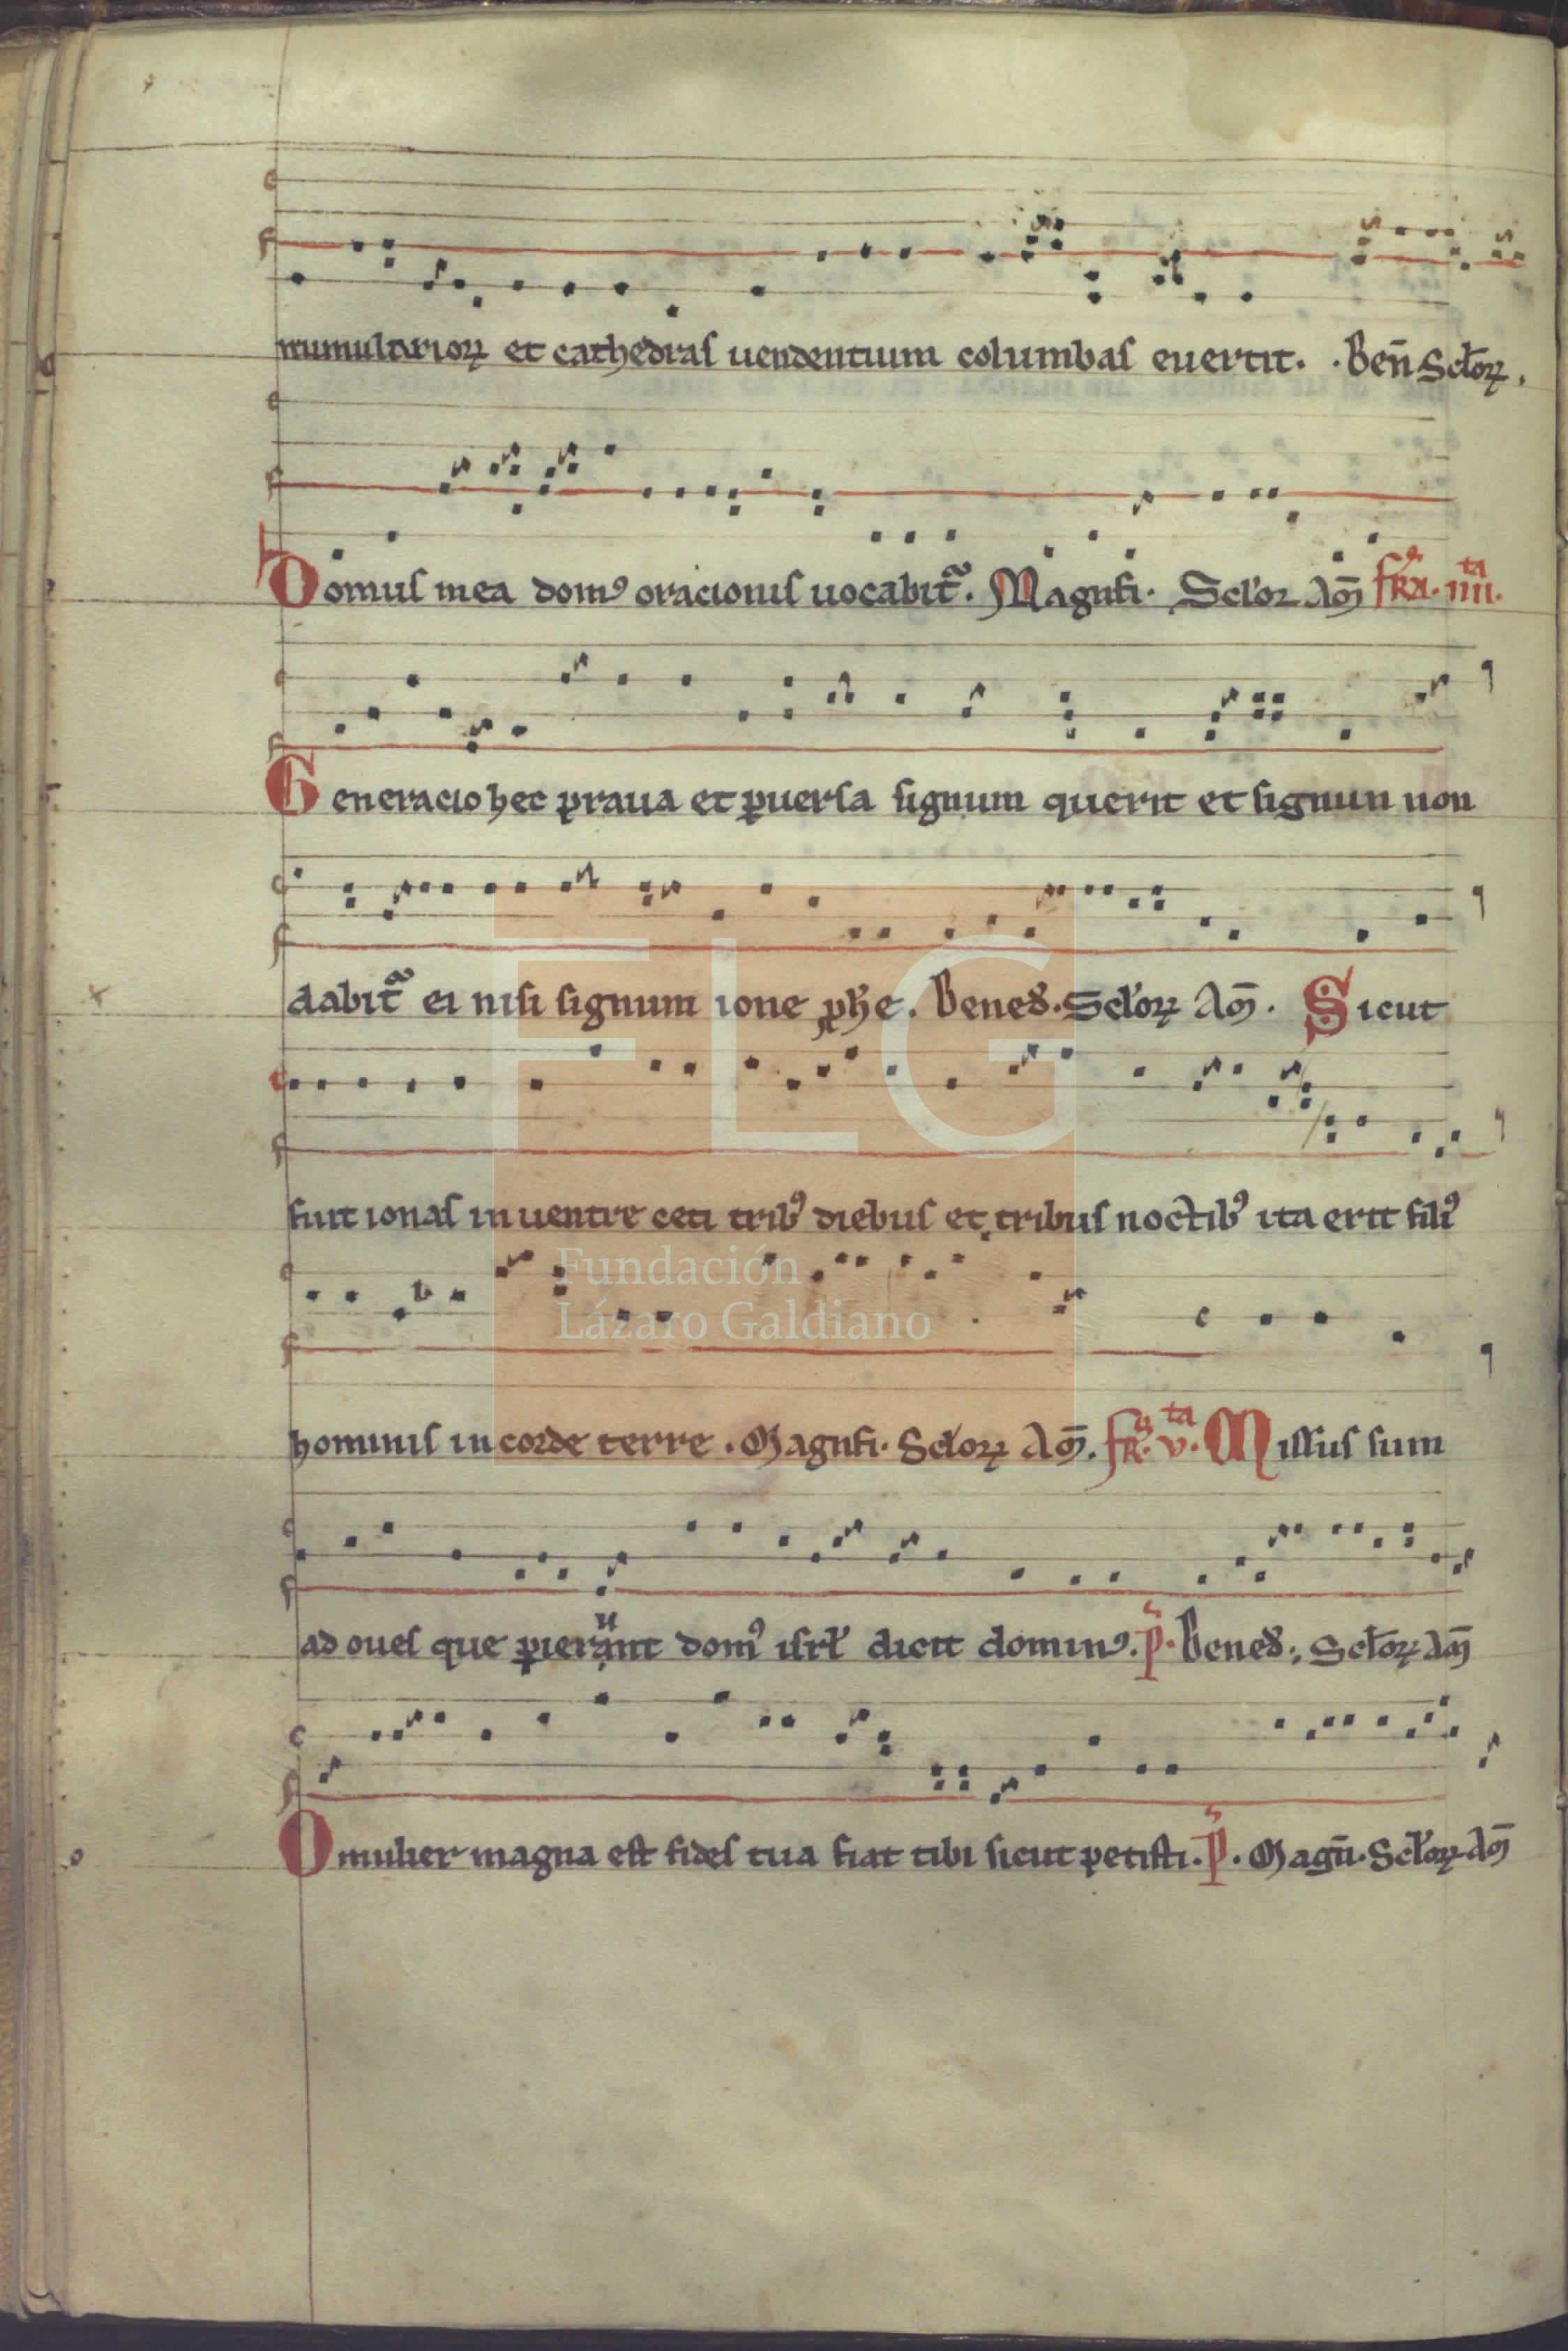 numulariorꝝ et cathedras uendentium columbas euertit. Ben̄ Sclorꝝ.
Domus mea domꝰ oracionis uocabit᷑. Magnfi. Sclor Am̄ fr̄a. iiii.ta
Generacio hec praua et ꝑuersa signum querit et signun non
dabit᷑ ei nisi signum ione ꝓhe. Bened̄. Sclorꝝ Am̄. Sicut
fuit ionas in uentre ceti tribꝰ diebus et tribus noctibꝰ ita erit filiꝰ
hominis in corde terre. Magnfi. Sclorꝝ Am̄. fr̄. v.ta Missus sum
ad oues que ꝑierant domꝰ isrł dicit dominꝰ. p̄. Bened̄. Sclorꝝ Am̄
O mulier magna est fides tua fiat tibi sicut petisti. p̄. Magn̄. Sclorꝝ Am̄
FLG
Fundación
Lázaro Galdiano